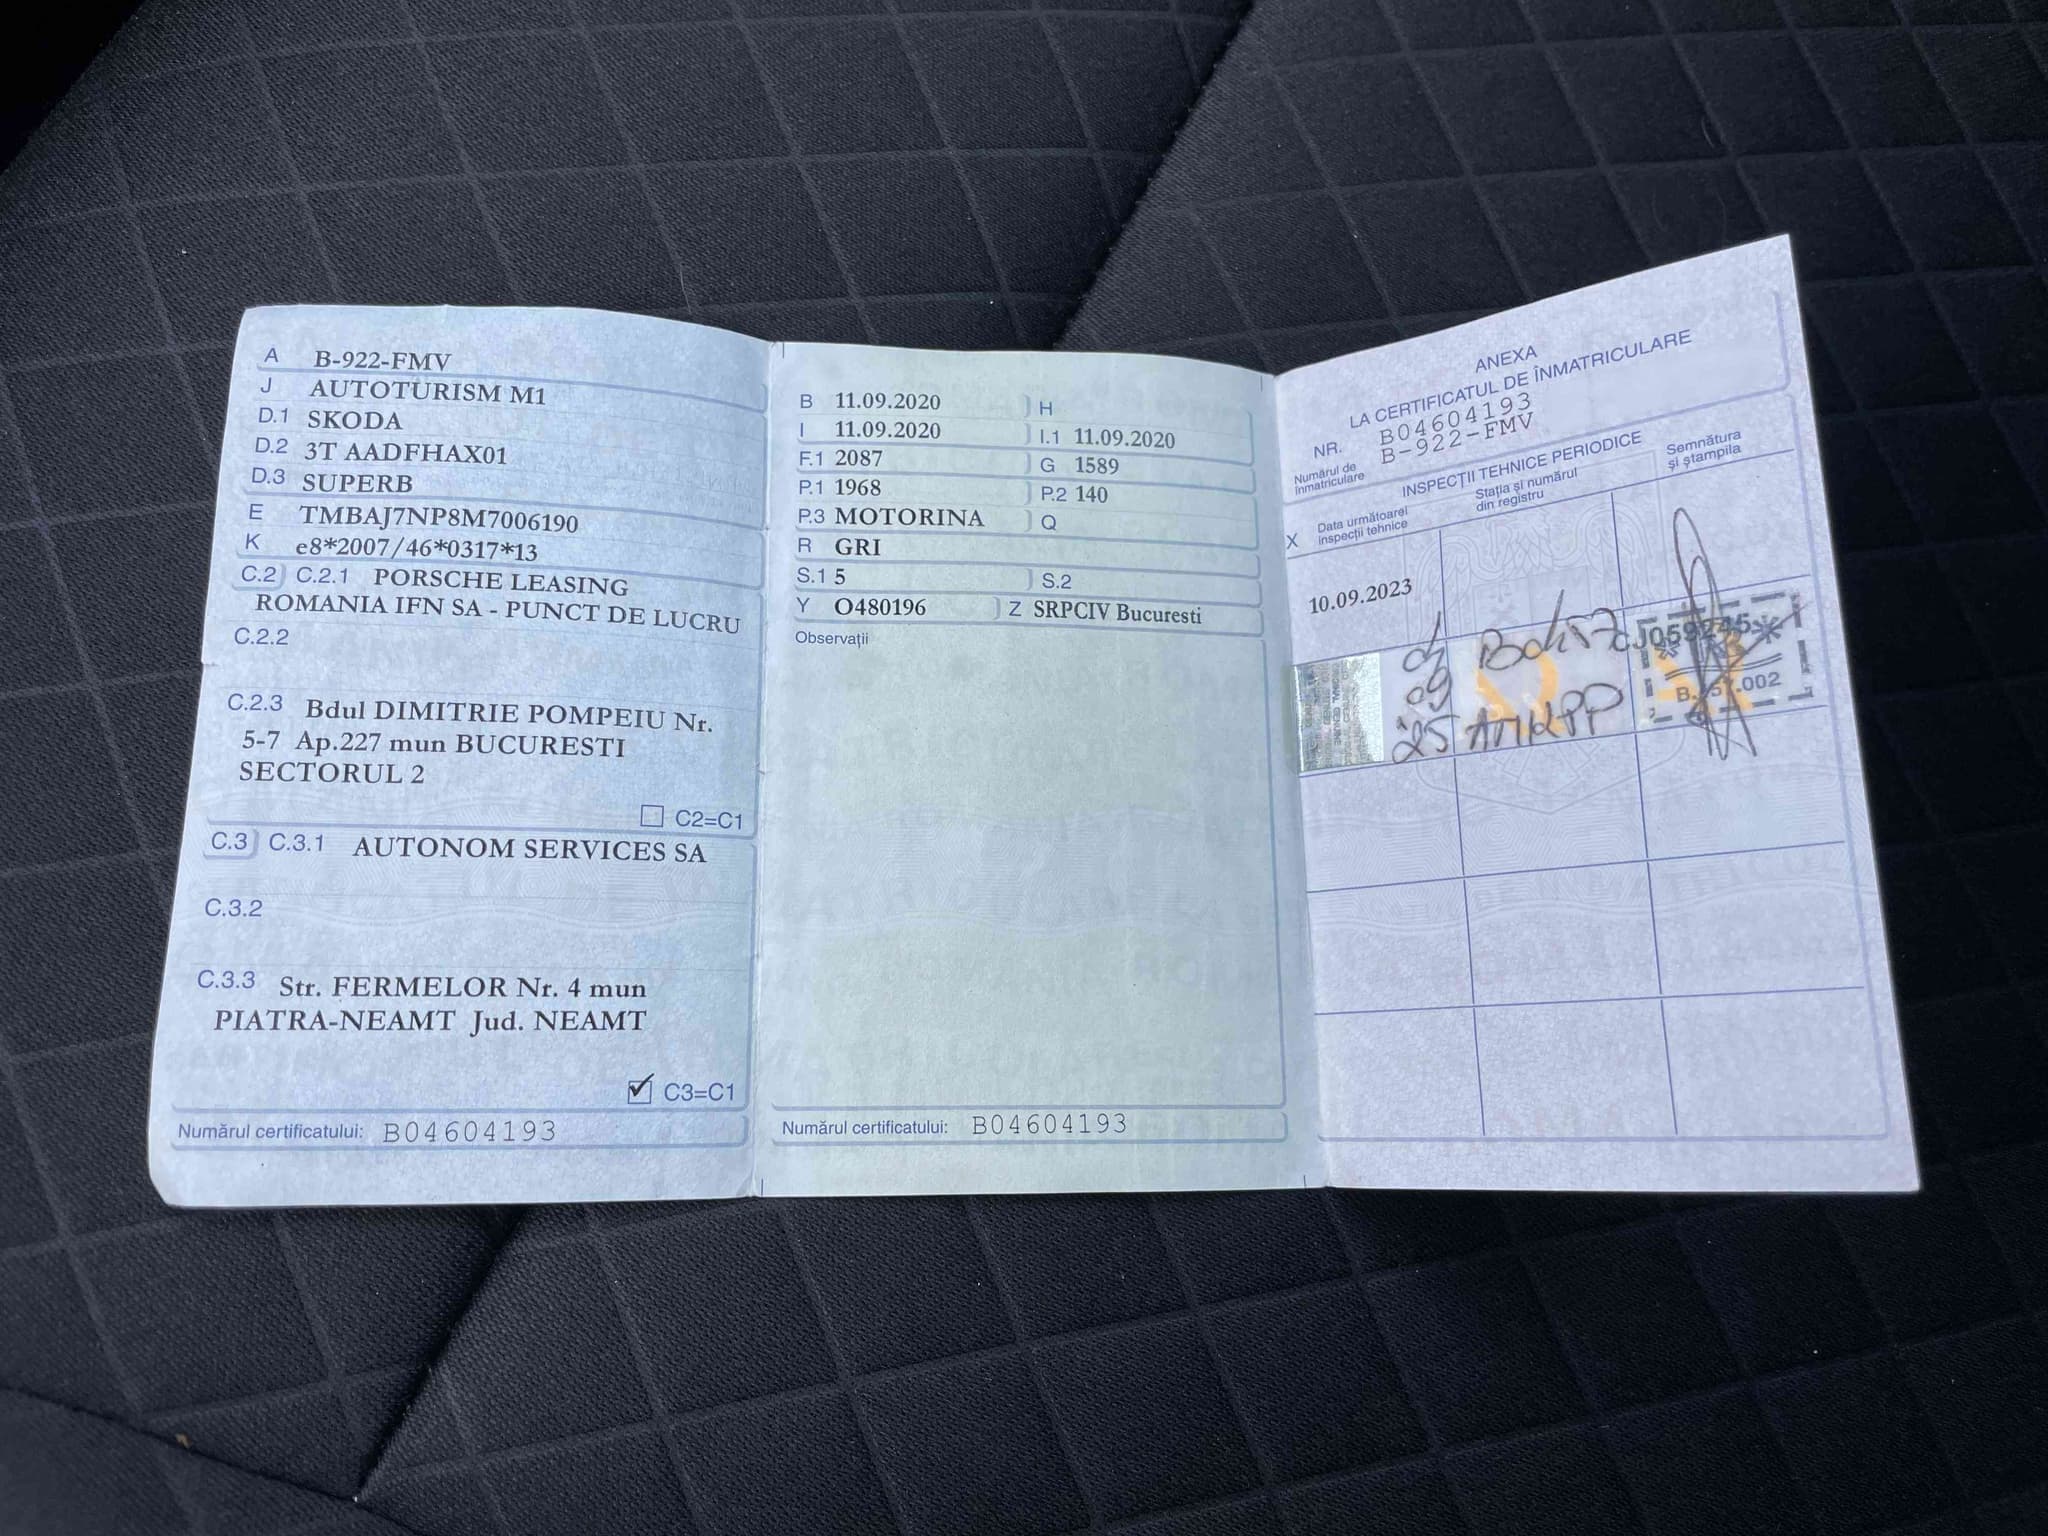 A B-922-FMV
J AUTOTURISM M1
D.1 SKODA
D.2 3T AADFHAX01
D.3 SUPERB
E TMBAJ7NP8M7006190
K e8*2007/46*0317*13
C.2 C.2.1 PORSCHE LEASING
ROMANIA IFN SA - PUNCT DE LUCRU
C.2.2
C.2.3 Bdul DIMITRIE POMPEIU Nr.
5-7 Ap.227 mun BUCURESTI
SECTORUL 2
C2=C1
C.3 C.3.1 AUTONOM SERVICES SA
C.3.2
C.3.3 Str. FERMELOR Nr. 4 mun
PIATRA-NEAMT Jud. NEAMT
C3=C1
Numărul certificatului: B04604193
B 11.09.2020 H
I 11.09.2020 I.1 11.09.2020
F.1 2087 G 1589
P.1 1968 P.2 140
P.3 MOTORINA Q
R GRI
S.1 5 S.2
Y O480196 Z SRPCIV Bucuresti
Observații
Numărul certificatului: B04604193
ANEXA
LA CERTIFICATUL DE ÎNMATRICULARE
NR. B04604193
Numărul de
înmatriculare B-922-FMV
INSPECȚII TEHNICE PERIODICE
X Data următoarei
inspecții tehnice
Stația și numărul
din registru
Semnătura
și ștampila
10.09.2023
09
25
CJ059245
002